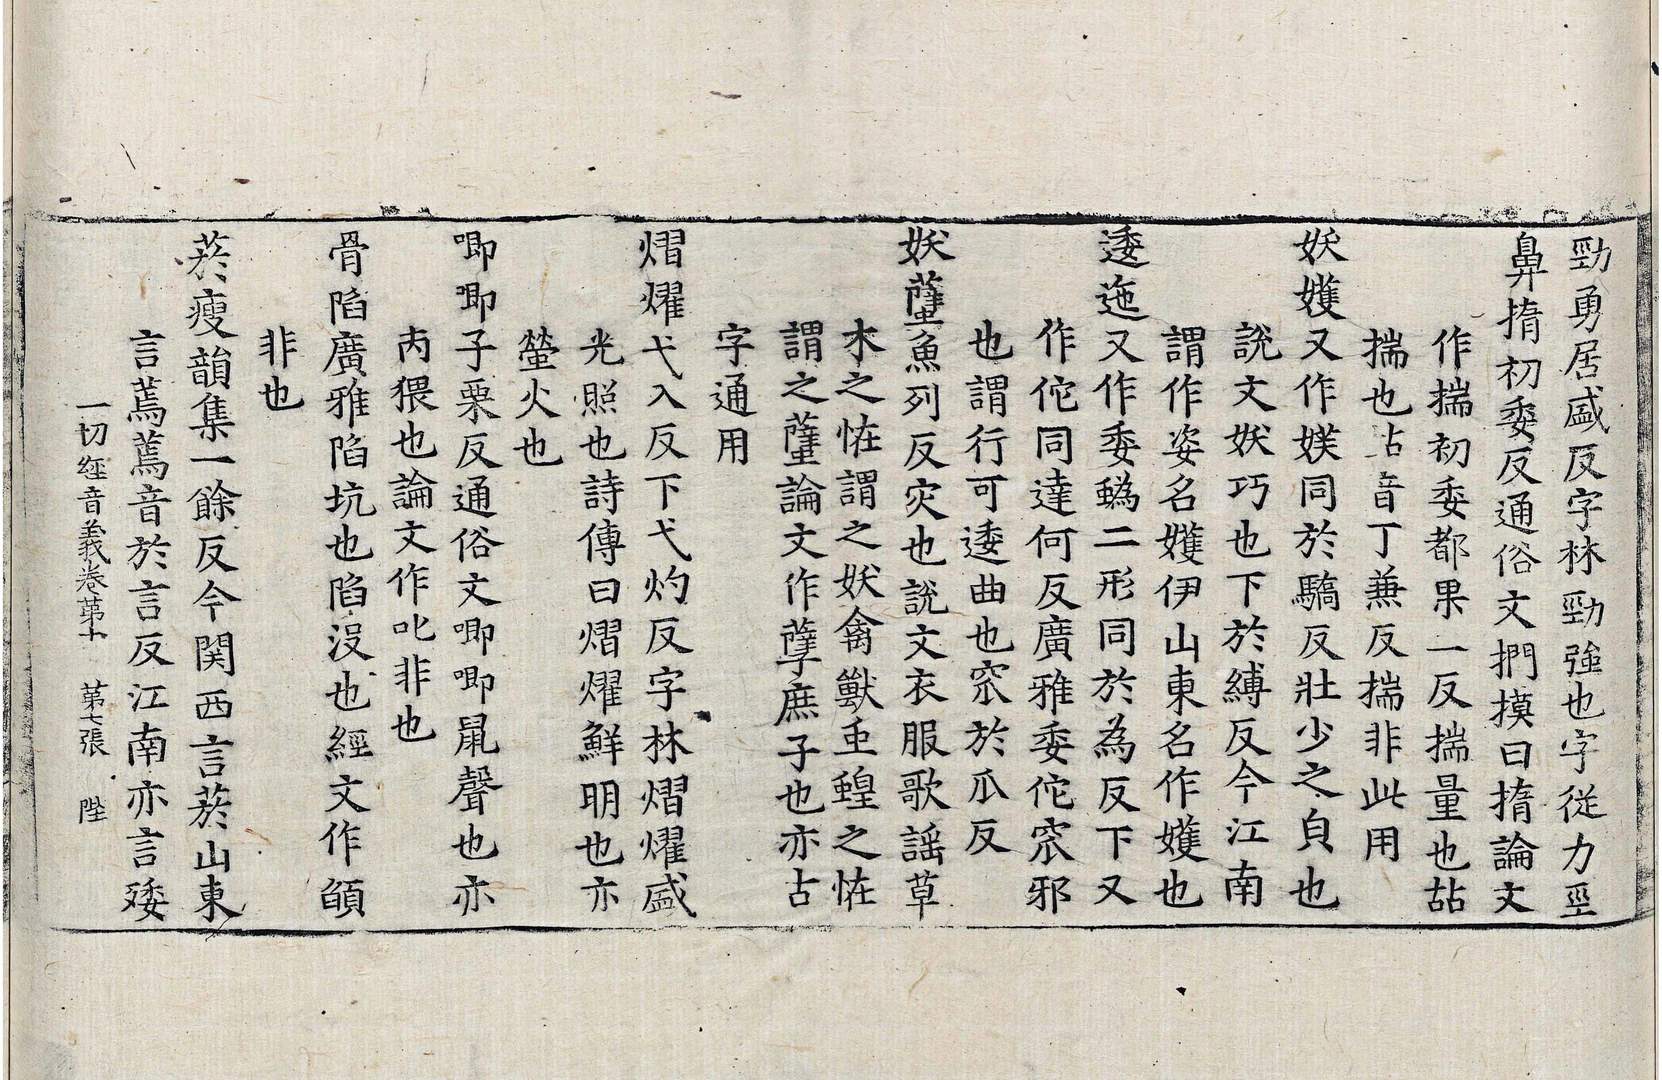 勁勇居盛反字林勁強也字從力巠
鼻揣初委反通俗文捫摸曰揣論文
作揣初委都果二反揣量也㪏
揣也㪏音丁兼反揣非此用
妖㜲又作媄同於驕反壯少之皃也
說文妖巧也下於縛反今江南
謂作姿名㜲伊山東名作㜲也
逶迤又作委蟡二形同於為反下又
作佗同達何反廣雅委佗窊邪
也謂行可逶曲也窊於瓜反
妖蠥魚列反灾也說文衣服歌謡草
木之恠謂之妖禽獸虫蝗之恠
謂之蠥論文作孽庶子也亦古
字通用
熠燿弋入反下弋灼反字林熠燿盛
光照也詩傳曰熠燿鮮明也亦
螢火也
喞喞子栗反通俗文喞喞鼠聲也亦
㕯猥也論文作叱非也
骨陷廣雅陷坑也陷没也經文作䪼
非也
菸瘦韻集一餘反今関西言菸山東
言蔫蔫音於言反江南亦言矮
一切經音義卷第十 第七張 陛